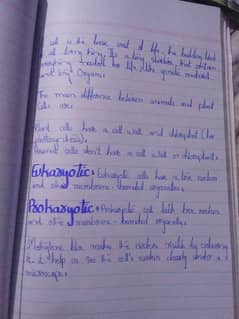 cell is the basic unit of life, the building block
of all living thing. Its a tiny structure, that contain
everything needed for life, like genetic material
and tiny Organs.
The main difference between animals and plant
Cells are:
Plant cells have a cell wall and chloroplast (for
photosynthesis).
Animal cells don't have a cell wall or chloroplasts.
Eukaryotic: Eukaryotic cells have a true nucleus
and other membrane-bounded organelles.
Prokaryotic: Prokaryotic cell lack true nucleus
and other membrane-bounded organelles.
Methylene blue makes the nucleus visible by colouring
it. It help us see the cell's nucleus clearly under a
microscope.